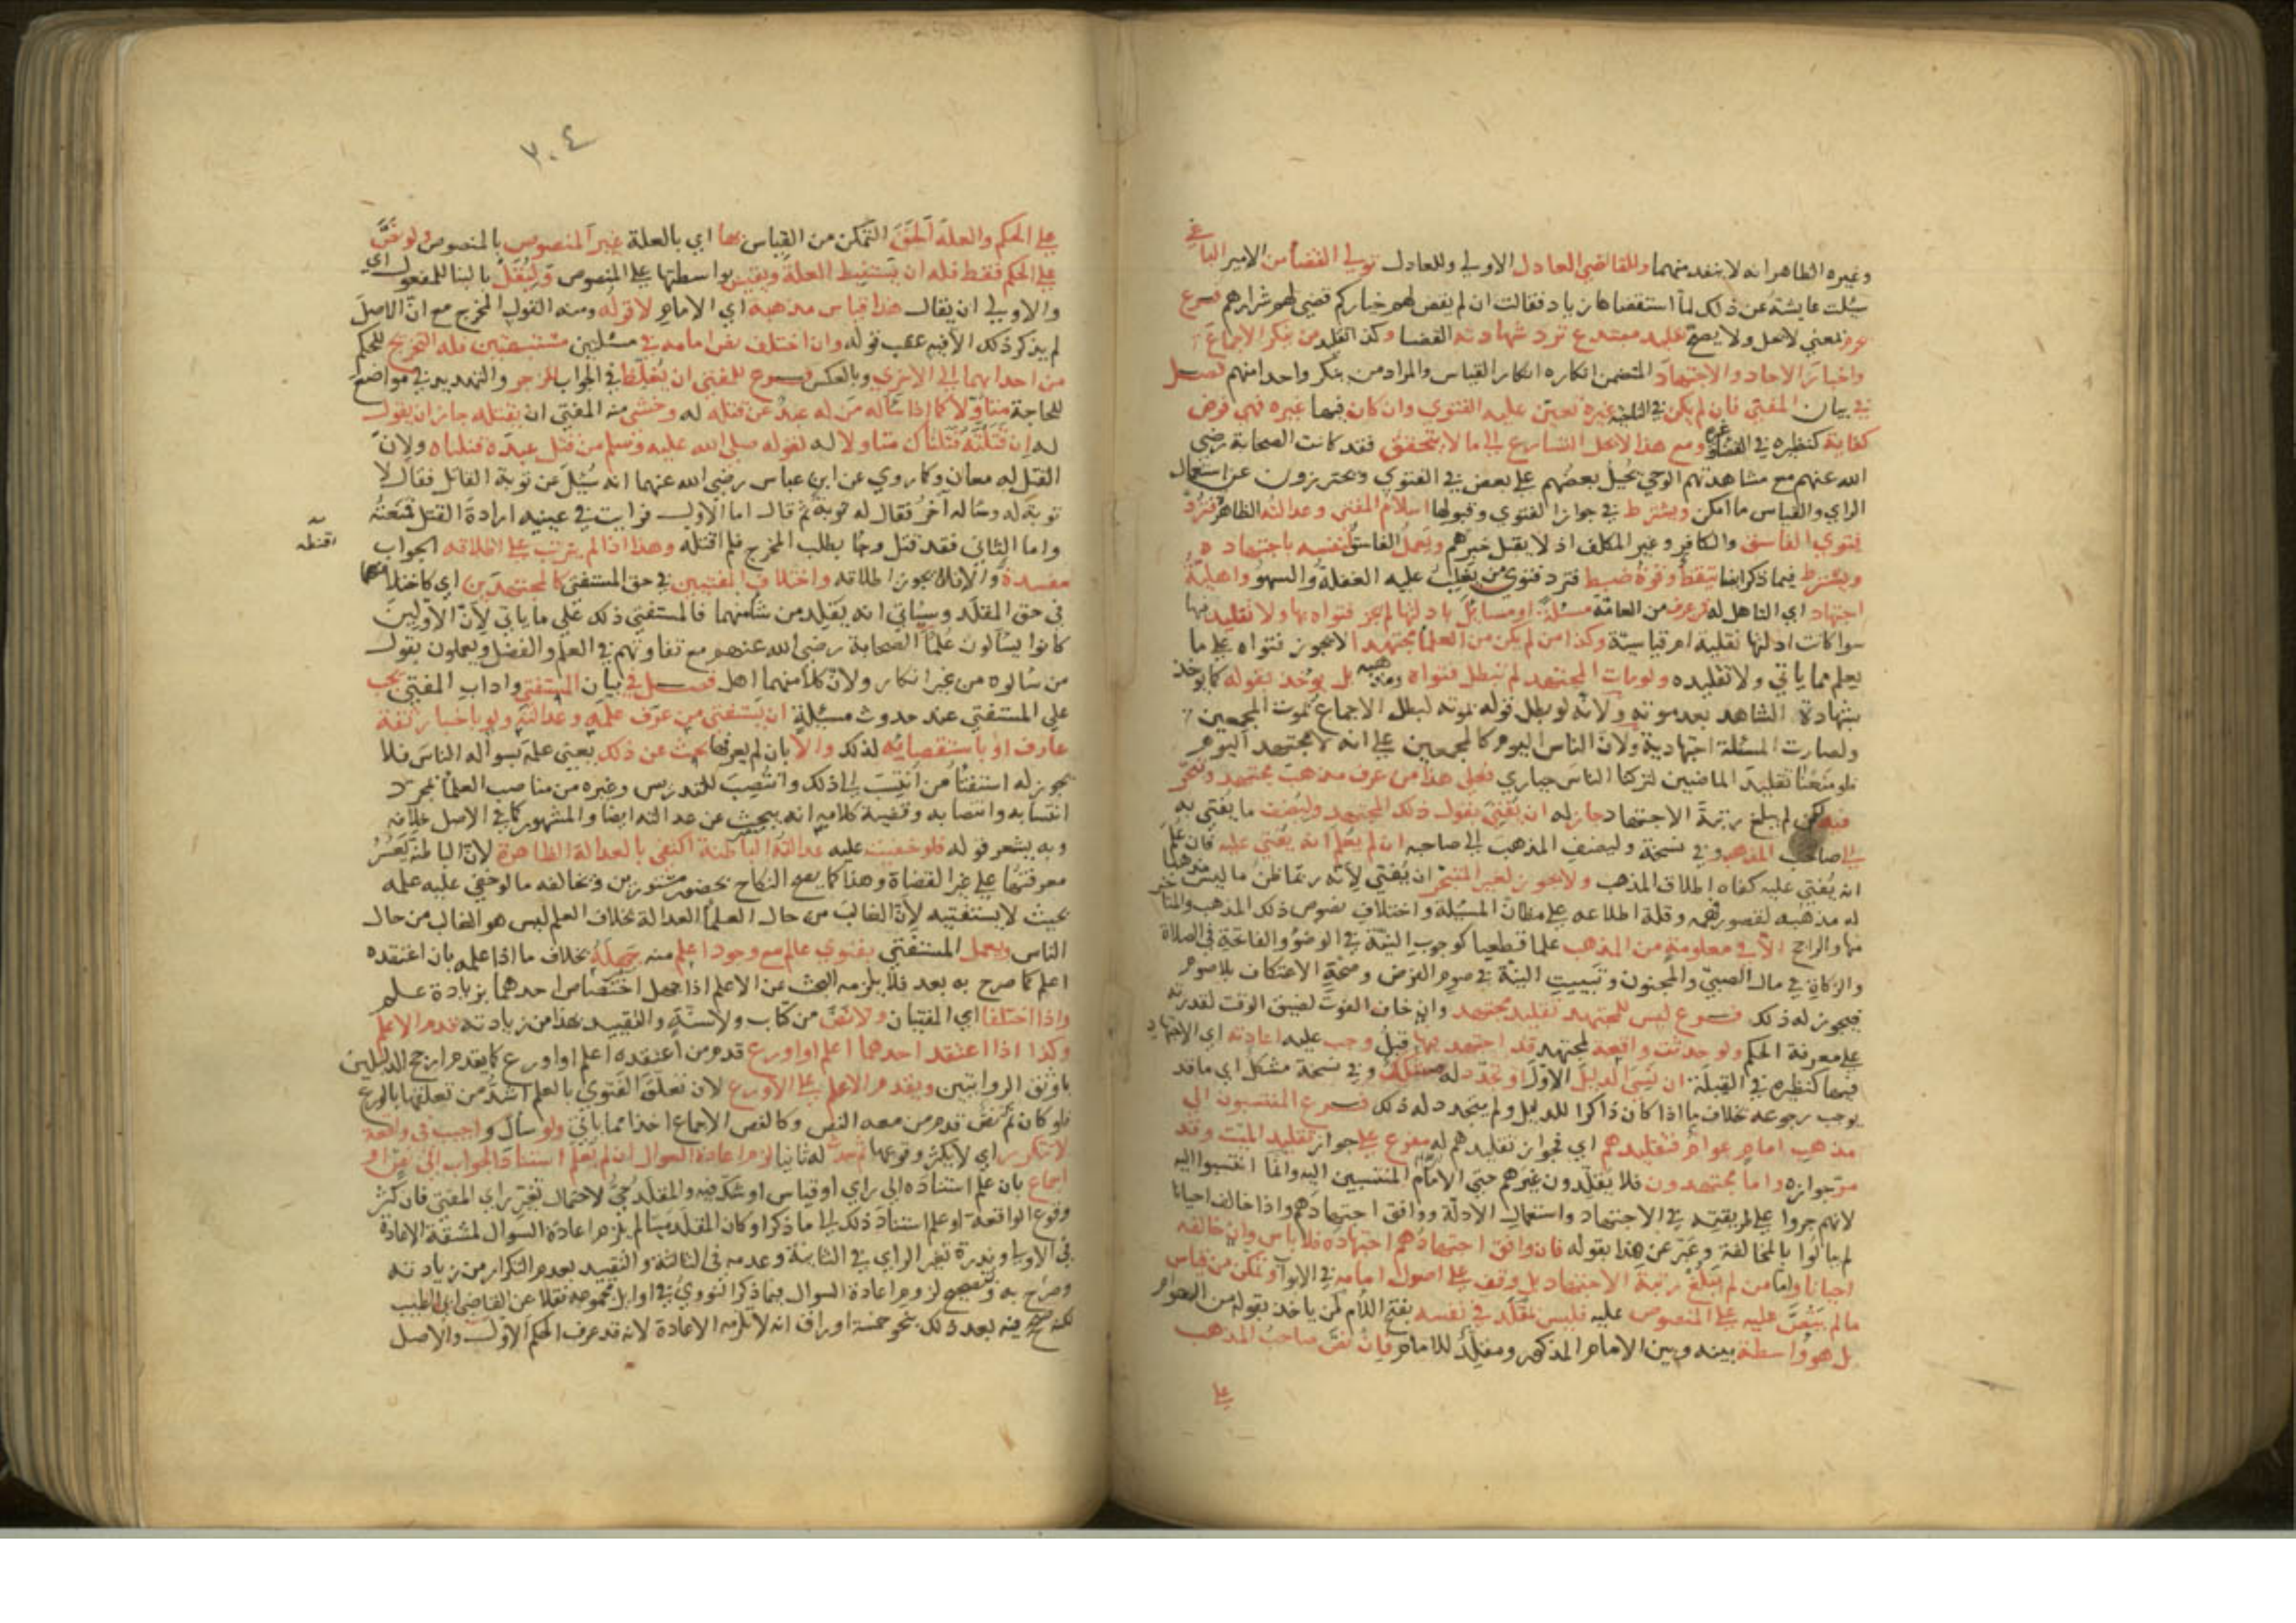 وغيره الظاهر انه لا ينفد منهما وللقاضي العادل الاولى وللعادل تولي القضا من الامير الباغي
سئلت عايشة عن ذلك لما استقضاها زياد فقالت ان لم يقض لهم خياركم قضى لهم شرارهم فرع
لا يحل ولا يصح تقليد مبتدع ترد شهادته القضا وكذا تقليد من ينكر الاجماع
واخبار الاحاد والاجتهاد المتضمن انكاره انكار القياس والمراد من ينكر واحدا منهم فصل
في بيان المفتي فان لم يكن في الناحية غيره تعين عليه الفتوي وان كان فيها غيره فهي فرض
كفاية كنظيره في القضا وغيره ومع هذا لا يحل التسارع الى ما لا يتحقق فقد كانت الصحابة رضي
الله عنهم مع مشاهدتهم الوحي يحيل بعضهم على بعض في الفتوي ويحترزون عن استعمال
الراي والقياس ما امكن ويشترط في جواز الفتوي وقبولها اسلام المفتي وعدالته الظاهرة فترد
فتوي الفاسق والكافر وغير المكلف اذ لا يقبل خبرهم ويعمل الفاسق لنفسه باجتهاده
ويشترط فيما ذكر ايضا تيقظ وقوة ضبط فترد فتوي من يغلب عليه الغفلة والسهو واهلية
اجتهاد اي التاهل له فمن عرف من العامة مسئلة او مسايل بادلتها لم يجز فتواه بها ولا تقليده فيها
سوا كانت ادلتها نقلية ام قياسية وكذا من لم يكن من العلما مجتهدا لا يجوز فتواه على ما
يعلم مما ياتي ولا تقليده ولو مات المجتهد لم تبطل فتواه ومذهبه بل يؤخذ بقوله كما يؤخذ
بشهادة الشاهد بعد موته ولانه لو بطل قوله بموته لبطل الاجماع بموت المجمعين
ولصارت المسئلة اجتهادية ولان الناس اليوم كالمجمعين على انه لا مجتهد اليوم
فلو منعنا تقليد الماضيين لتركنا الناس حياري فعلى هذا من عرف مذهب مجتهد وتبحر
فيه لكن لم يبلغ رتبة الاجتهاد جاز له ان يفتي بقول ذلك المجتهد وليضف ما يفتي به
الى صاحب المذهب وفي نسخة وليضف المذهب الى صاحبه ان لم يعلم انه يفتي عليه فان علم
انه يفتي عليه كفاه اطلاق المذهب ولا يجوز لغير المتبحر ان يفتي لانه ربما ظن ما ليس مذهبا
له مذهبه لقصور فهمه وقلة اطلاعه على مظان المسئلة واختلاف نصوص ذلك المذهب والمتاخر
منها والراجح الا في معلومة من المذهب علما قطعيا كوجوب النية في الوضو والفاتحة في الصلاة
والزكاة في مال الصبي والمجنون وتبييت النية في صوم الفرض وصحة الاعتكاف بلا صوم
فيجوز له ذلك فرع ليس للمجتهد تقليد مجتهد وان خاف الفوت لضيق الوقت لقدرته
على معرفة الحكم ولو حدثت واقعة لمجتهد قد اجتهد فيها قبل وجب عليه اعادته اي الاجتهاد
فيها كنظيره في القبلة ان نسي الدليل الاول او تجدد له مشكك وفي نسخة مشكل اي ما قد
يوجب رجوعه بخلاف ما اذا كان ذاكرا للدليل ولم يتجدد له ذلك فرع المنتسبون الى
مذهب امام عوام فتقليدهم اي فجواز تقليدهم له مفرع على جواز تقليد الميت وقد
مر جوازه واما مجتهدون فلا يقلدون غيرهم حتى الامام المنتسبين اليه وانما انتسبوا اليه
لانهم جروا على طريقته في الاجتهاد واستعمال الادلة ووافق اجتهادهم واذا خالف احيانا
لم يبالوا بالمخالفة وعبر عن هذا بقوله فان وافق اجتهادهم اجتهاده فلا باس وان خالفه
احيانا واما من لم يبلغ رتبة الاجتهاد بل وقف على اصول امامه في الابواب وتمكن من قياس
ما لم ينص عليه على المنصوص عليه فليس بمقلد في نفسه بفتح اللام لمن ياخذ بقوله من العوام
بل هو واسطة بينه وبين الامام المذكور ومقلد للامام فان نص صاحب المذهب
على
٣٠٤
على الحكم والعلة الحق المتمكن من القياس بها اي بالعلة غير المنصوص بالمنصوص ولو نص
على الحكم فقط فله ان يستنبط العلة ويقيس بواسطتها على المنصوص وليقل بالبنا للمفعول اي
والاولى ان يقال هذا قياس مذهبه اي الامام لا قوله ومنه القول المخرج مع ان الاصل
لم يذكر ذلك الا فيه عقب قوله وان اختلف نص امامه في مسئلتين مشتبهتين فله التخريج للحكم
من احداهما الى الاخرى وبالعكس فرع للمفتي ان يغلظ في الجواب للزجر والتهديد في مواضع
للحاجة متاولا كما اذا ساله من له عبد عن قتله له وخشي منه المفتي ان يقتله جاز ان يقول
له ان قتلته قتلناك متاولا له لقوله صلى الله عليه وسلم من قتل عبده قتلناه ولان
القتل له معان وكما روي عن ابن عباس رضي الله عنهما انه سئل عن توبة القاتل فقال لا
توبة له وساله آخر فقال له توبة ثم قال اما الاول فرايت في عينيه ارادة القتل فمنعته
واما الثاني فقد قتل وجا يطلب المخرج فلم اقنطه وهذا اذا لم يترتب على اطلاقه الجواب
اقنطه
مفسدة والا فلا يجوز اطلاقه واختلاف المفتيين في حق المستفتي كالمجتهدين اي كاختلافهما
في حق المقلد وسياتي انه يقلد من شا منهما فالمستفتي ذلك على ما ياتي لان الاولين
كانوا يسالون علما الصحابة رضي الله عنهم مع تفاوتهم في العلم والفضل ويعملون بقول
من سالوه من غير انكار ولان كلا منهما اهل فصل في بيان المستفتي واداب المفتي يجب
على المستفتي عند حدوث مسئلة ان يستفتي من عرف علمه وعدالته ولو باخبار ثقة
عارف او باستفاضته لذلك والا بان لم يعرفها بحث عن ذلك يعني علمه بسواله الناس فلا
يجوز له استفتا من انتسب الى ذلك وانتصب للتدريس وغيره من مناصب العلما بمجرد
انتسابه وانتصابه وقضية كلامه انه يبحث عن عدالته ايضا والمشهور كما في الاصل خلافه
وبه يشعر قوله فلو خفيت عليه عدالته الباطنة اكتفى بالعدالة الظاهرة لان الباطنة تعسر
معرفتها على غير القضاة وهذا كما يصح النكاح بحضور مستورين ويخالفه ما لو خفي عليه علمه
بحيث لا يستفتيه لان الغالب من حال العلما العدالة بخلاف العلم ليس هو الغالب من حال
الناس ويعمل المستفتي بفتوي عالم مع وجود اعلم منه جهله بخلاف ما اذا علمه بان اعتقده
اعلم كما صرح به بعد فلا يلزمه البحث عن الاعلم اذا جهل اختصاص احدهما بزيادة علم
واذا اختلفا اي المفتيان ولا نص من كتاب ولا سنة والتقييد بهذا من زيادته قدم الاعلم
وكذا اذا اعتقد احدهما اعلم او اورع قدم من اعتقده اعلم او اورع كما يقدم ارجح الدليلين
باوثق الروايتين ويقدم الاعلم على الاورع لان تعلق الفتوي بالعلم اشد من تعلقها بالورع
فلو كان ثم نص قدم من معه النص وكالنص الاجماع اخذا مما ياتي ولو سال واجيب في واقعة
لا تتكرر اي لا يكثر وقوعها ثم حدثت له ثانيا لزم اعادة السوال ان لم يعلم استناد الجواب الى نص او
اجماع بان علم استناده الى راي او قياس او شك فيه والمقلد حي لاحتمال تغير راي المفتي فان كثر
وقوع الواقعة او علم استناد ذلك الى ما ذكر او كان المقلد ميتا لم يلزم اعادة السوال لمشقة الاعادة
في الاولى وندرة تغير الراي في الثانية وعدمه في الثالثة والتقييد بعدم التكرار من زيادته
وصرح به وتصحيح لزوم اعادة السوال فيما ذكر النووي في اوايل مجموعه نقلا عن القاضي ابي الطيب
لكنه صحح فيه بعد ذلك بنحو خمسة اوراق انه لا تلزمه الاعادة لانه قد عرف الحكم الاول والاصل